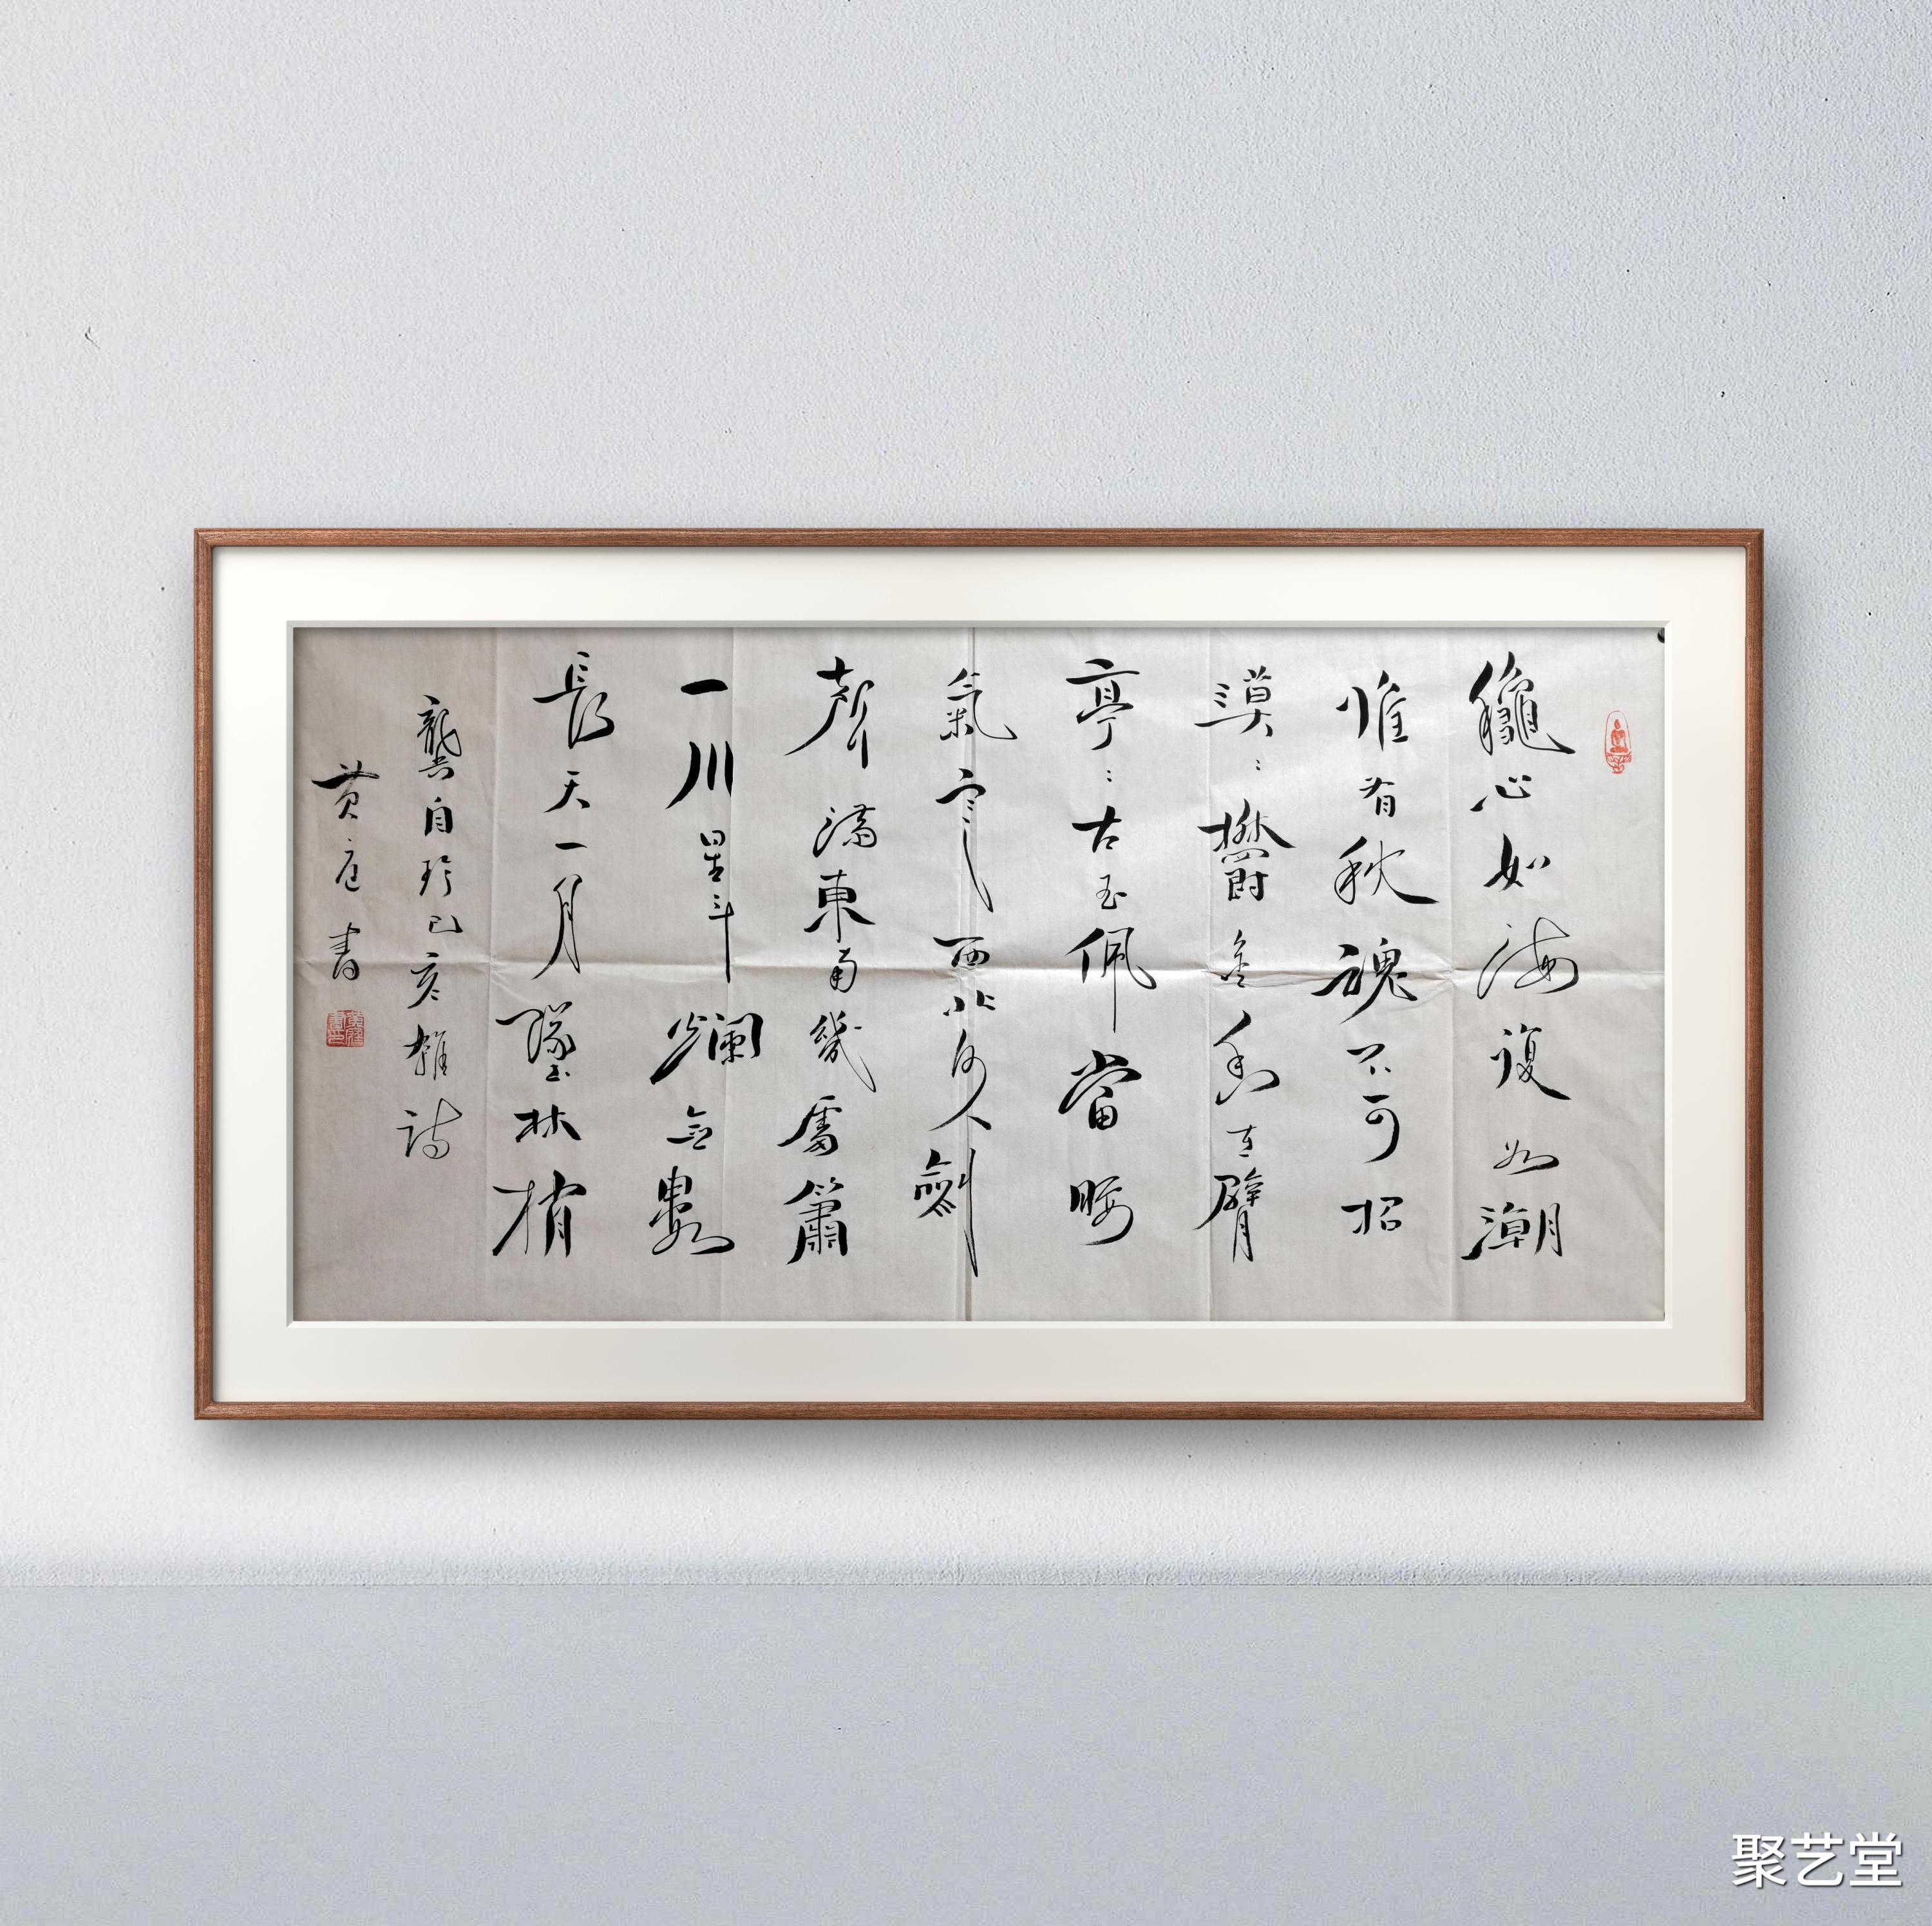 龝心如海復如潮
惟有秋魂不可招
漠:鬱金香在臂
亭:古玉佩當腰
氣寒西北何人劍
聲滿東南幾處簫
一川星斗爛無數
長天一月墜林梢
龔自珍己亥雜詩
黄庭書
聚艺堂